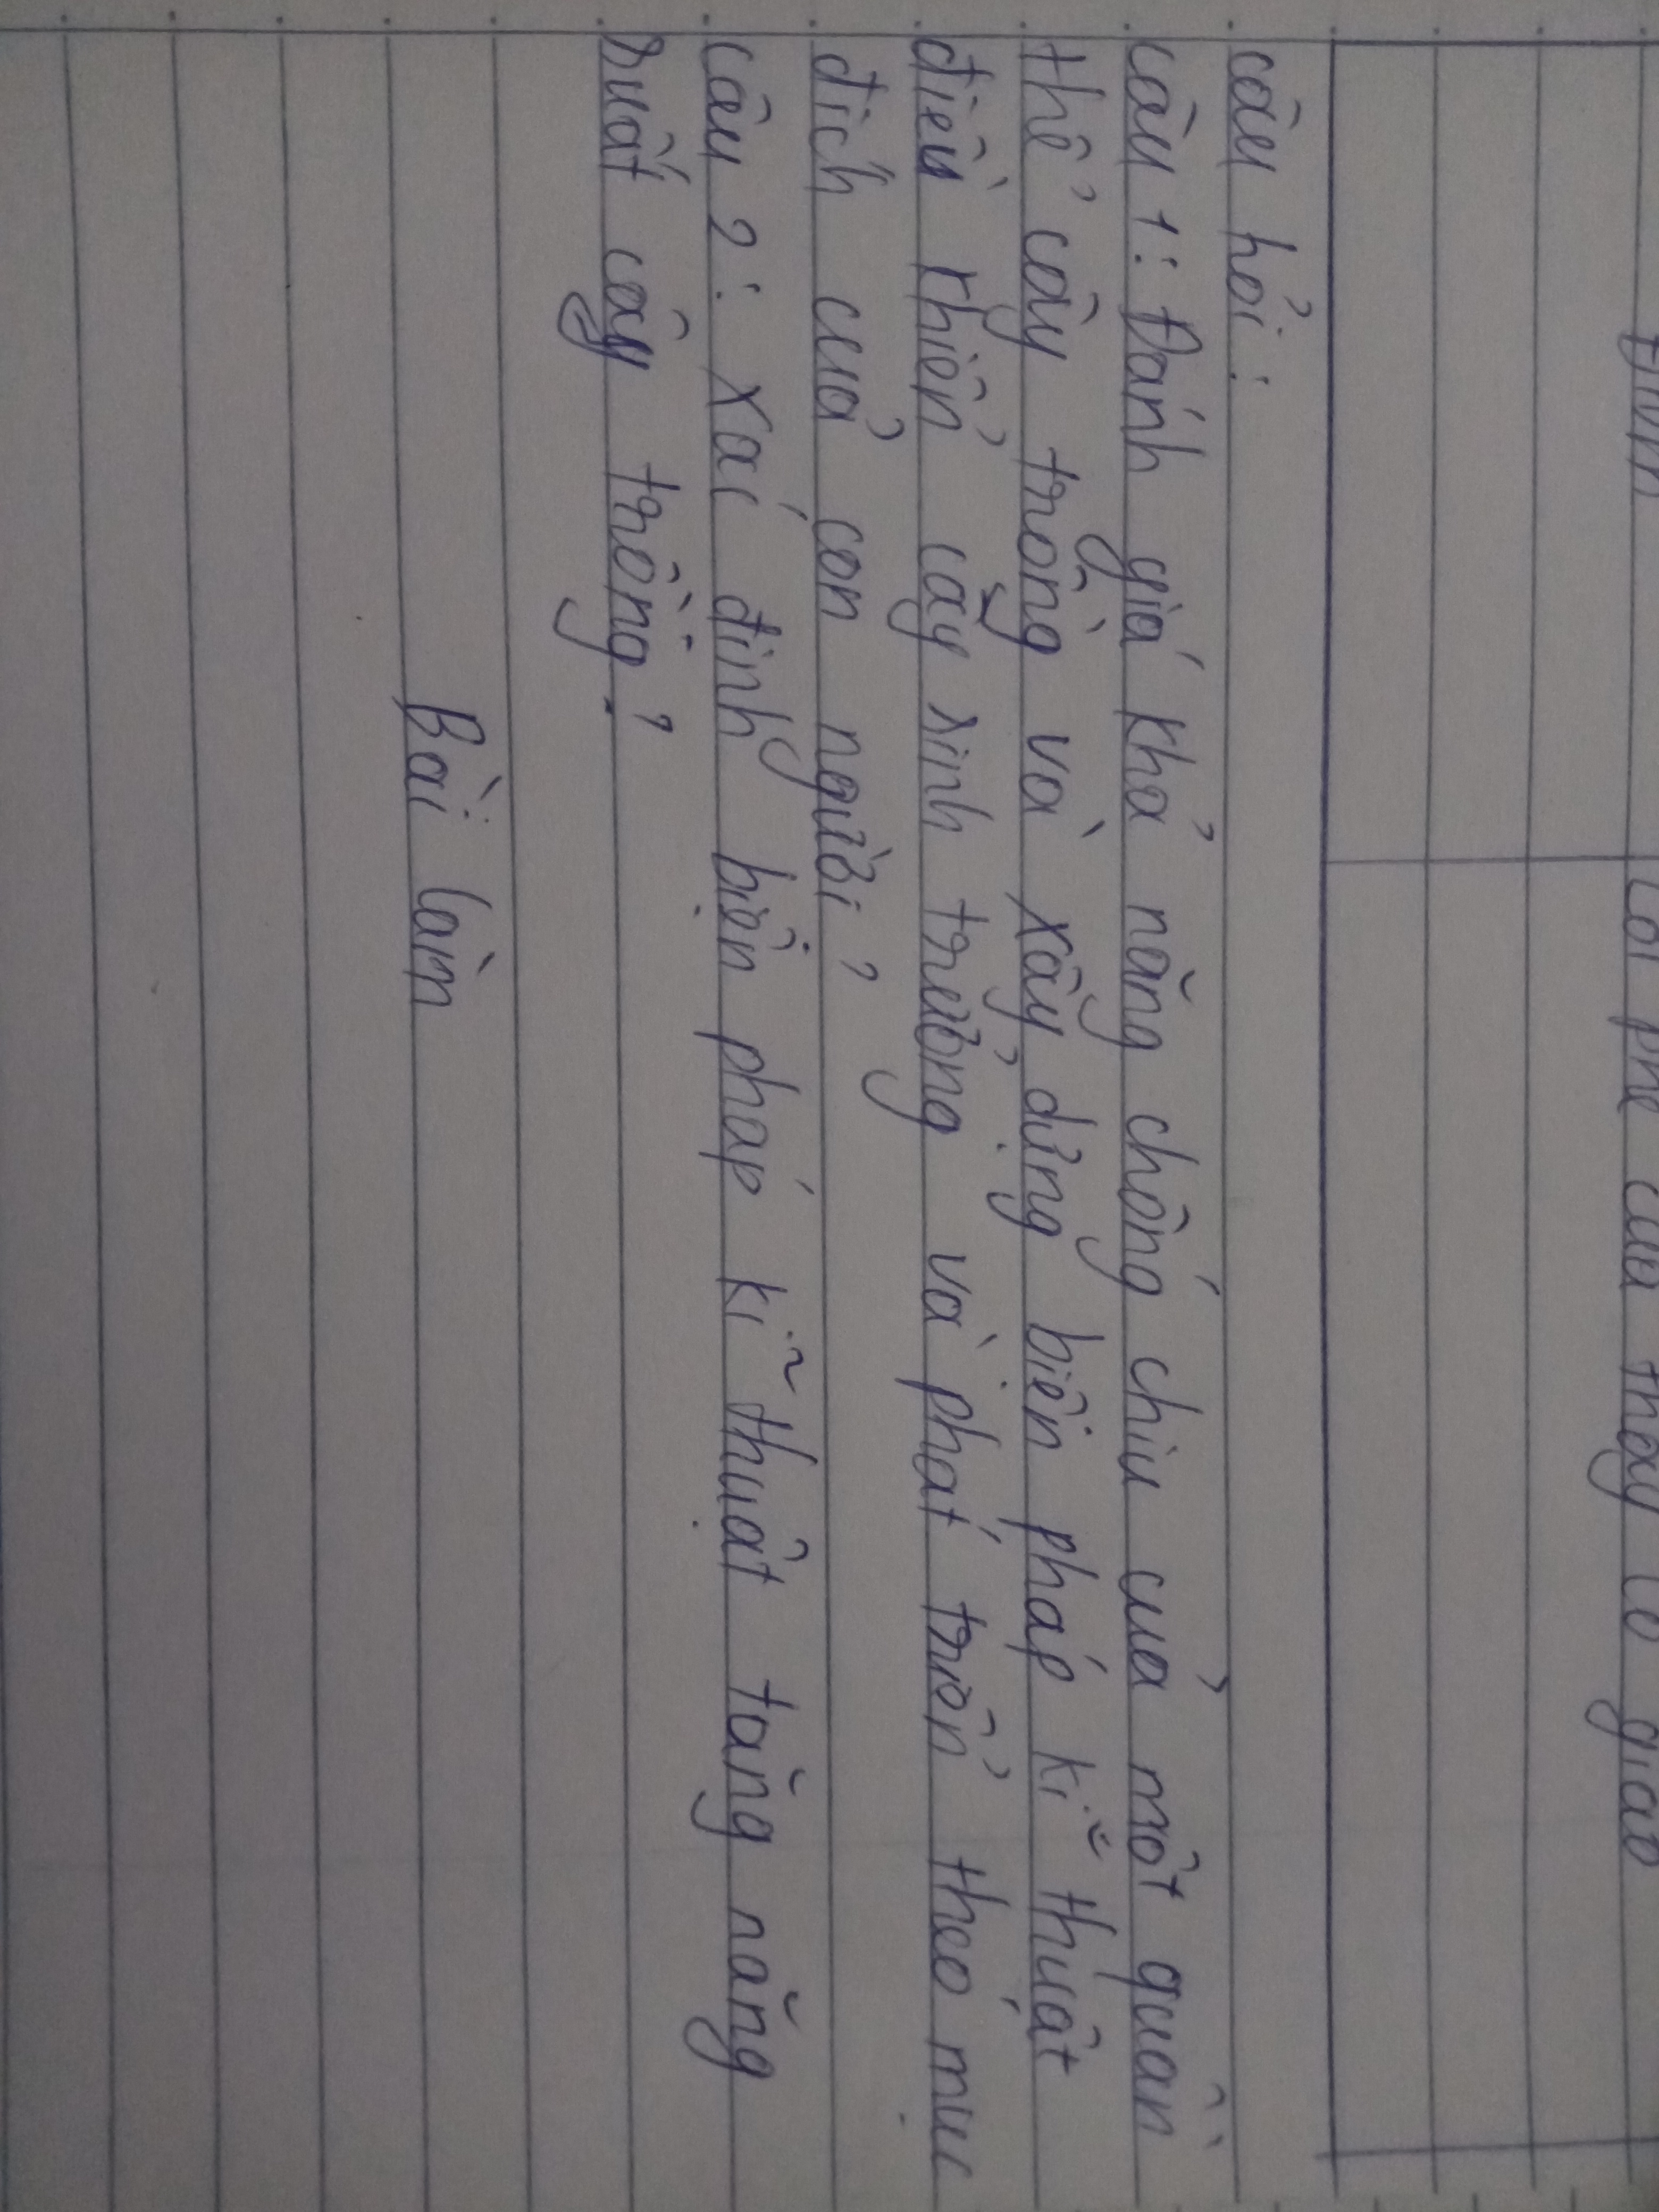 Điểm Lời phê của thầy cô giáo
câu hỏi:
câu 1: Đánh giá khả năng chống chịu của một quần
thể cây trồng và xây dựng biện pháp kĩ thuật
điều khiển cây sinh trưởng và phát triển theo mục
đích của con người?
câu 2: Xác định biện pháp kĩ thuật tăng năng
suất cây trồng?
Bài làm